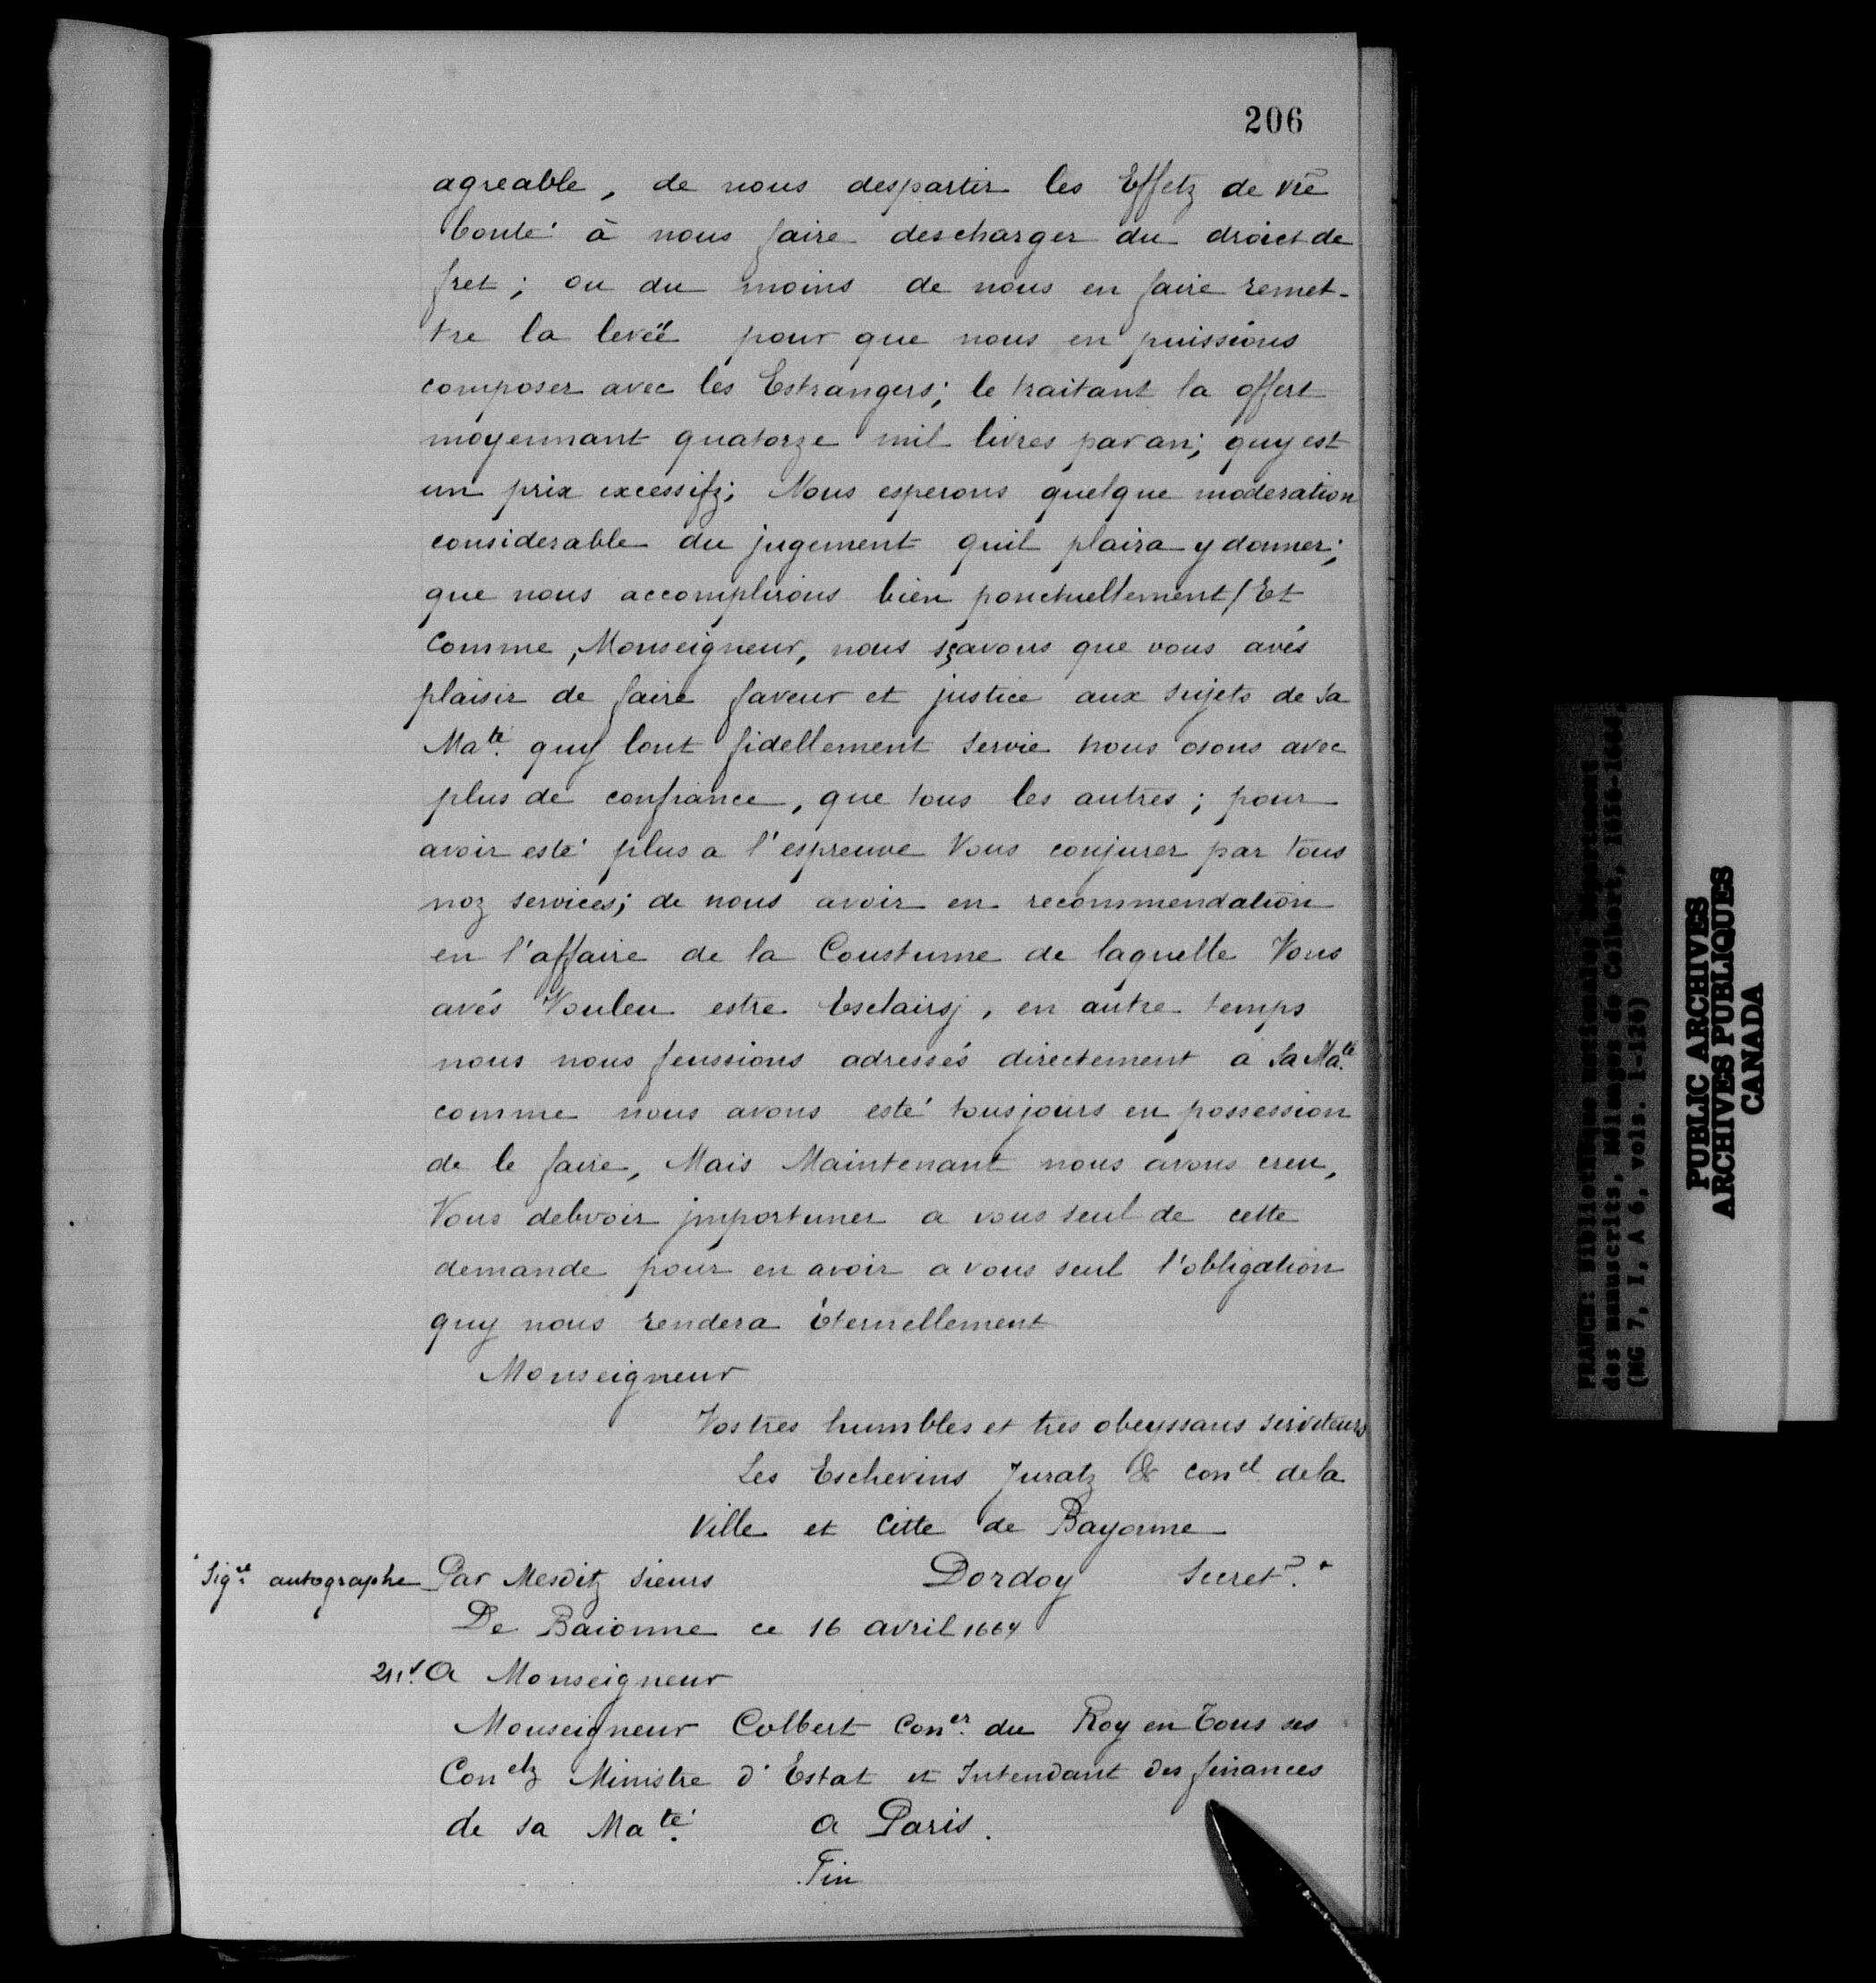 206
agreable, de nous despartir les Effetz de vr̃e
bonté à nous faire descharger du droict de
fret; ou du moins de nous en faire remet-
tre la levéë pour que nous en puissions
composer avec les Estrangers; le traitant la offert
moyennant quatorze mil livres par an; quy est
un prix excessifz; Nous esperons quelque moderation
considerable du jugement quil plaira y donner;
que nous accomplirons bien ponctuellement / Et
Comme, Monseigneur, nous sçavons que vous avés
plaisir de faire faveur et justice aux sujets de Sa
Ma.té quy lont fidellement servie nous osons avec
plus de confiance, que tous les autres; pour
avoir esté plus a l'espreuve Vous conjurer par tous
noz services; de nous avoir en recommendation
en l'affaire de la Coustume de laquelle Vous
avés Vouleu estre Esclairsj, en autre temps
nous nous feussions adressés directement a Sa Ma.té
comme nous avons esté tousjours en possession
de le faire, Mais Maintenant nous avons creu,
Vous debvoir jmportuner a vous seul de cette
demande pour en avoir a vous seul l'obligation
quy nous rendera éternellement
Monseigneur
Vos tres humbles et tres obeyssans serviteurs
Les Eschevins Juratz & con.el de la
Ville et Citte de Bayonne
Sig.re autographe Par Mesditz sieurs Dordoy Secret.re
De Baionne ce 16 avril 1664
211.v A Monseigneur
Monseigneur Colbert Con.er du Roy en Tous ses
Con elz Ministre d'Estat et Intendant des finances
de sa Ma.té a Paris.
Fin
FRANCE: Bibliothèque Nationale, Département
des manuscrits, Mélanges de Colbert,
(MG 7, I, A 6, vols. 1-126)
PUBLIC ARCHIVES
ARCHIVES PUBLIQUES
CANADA